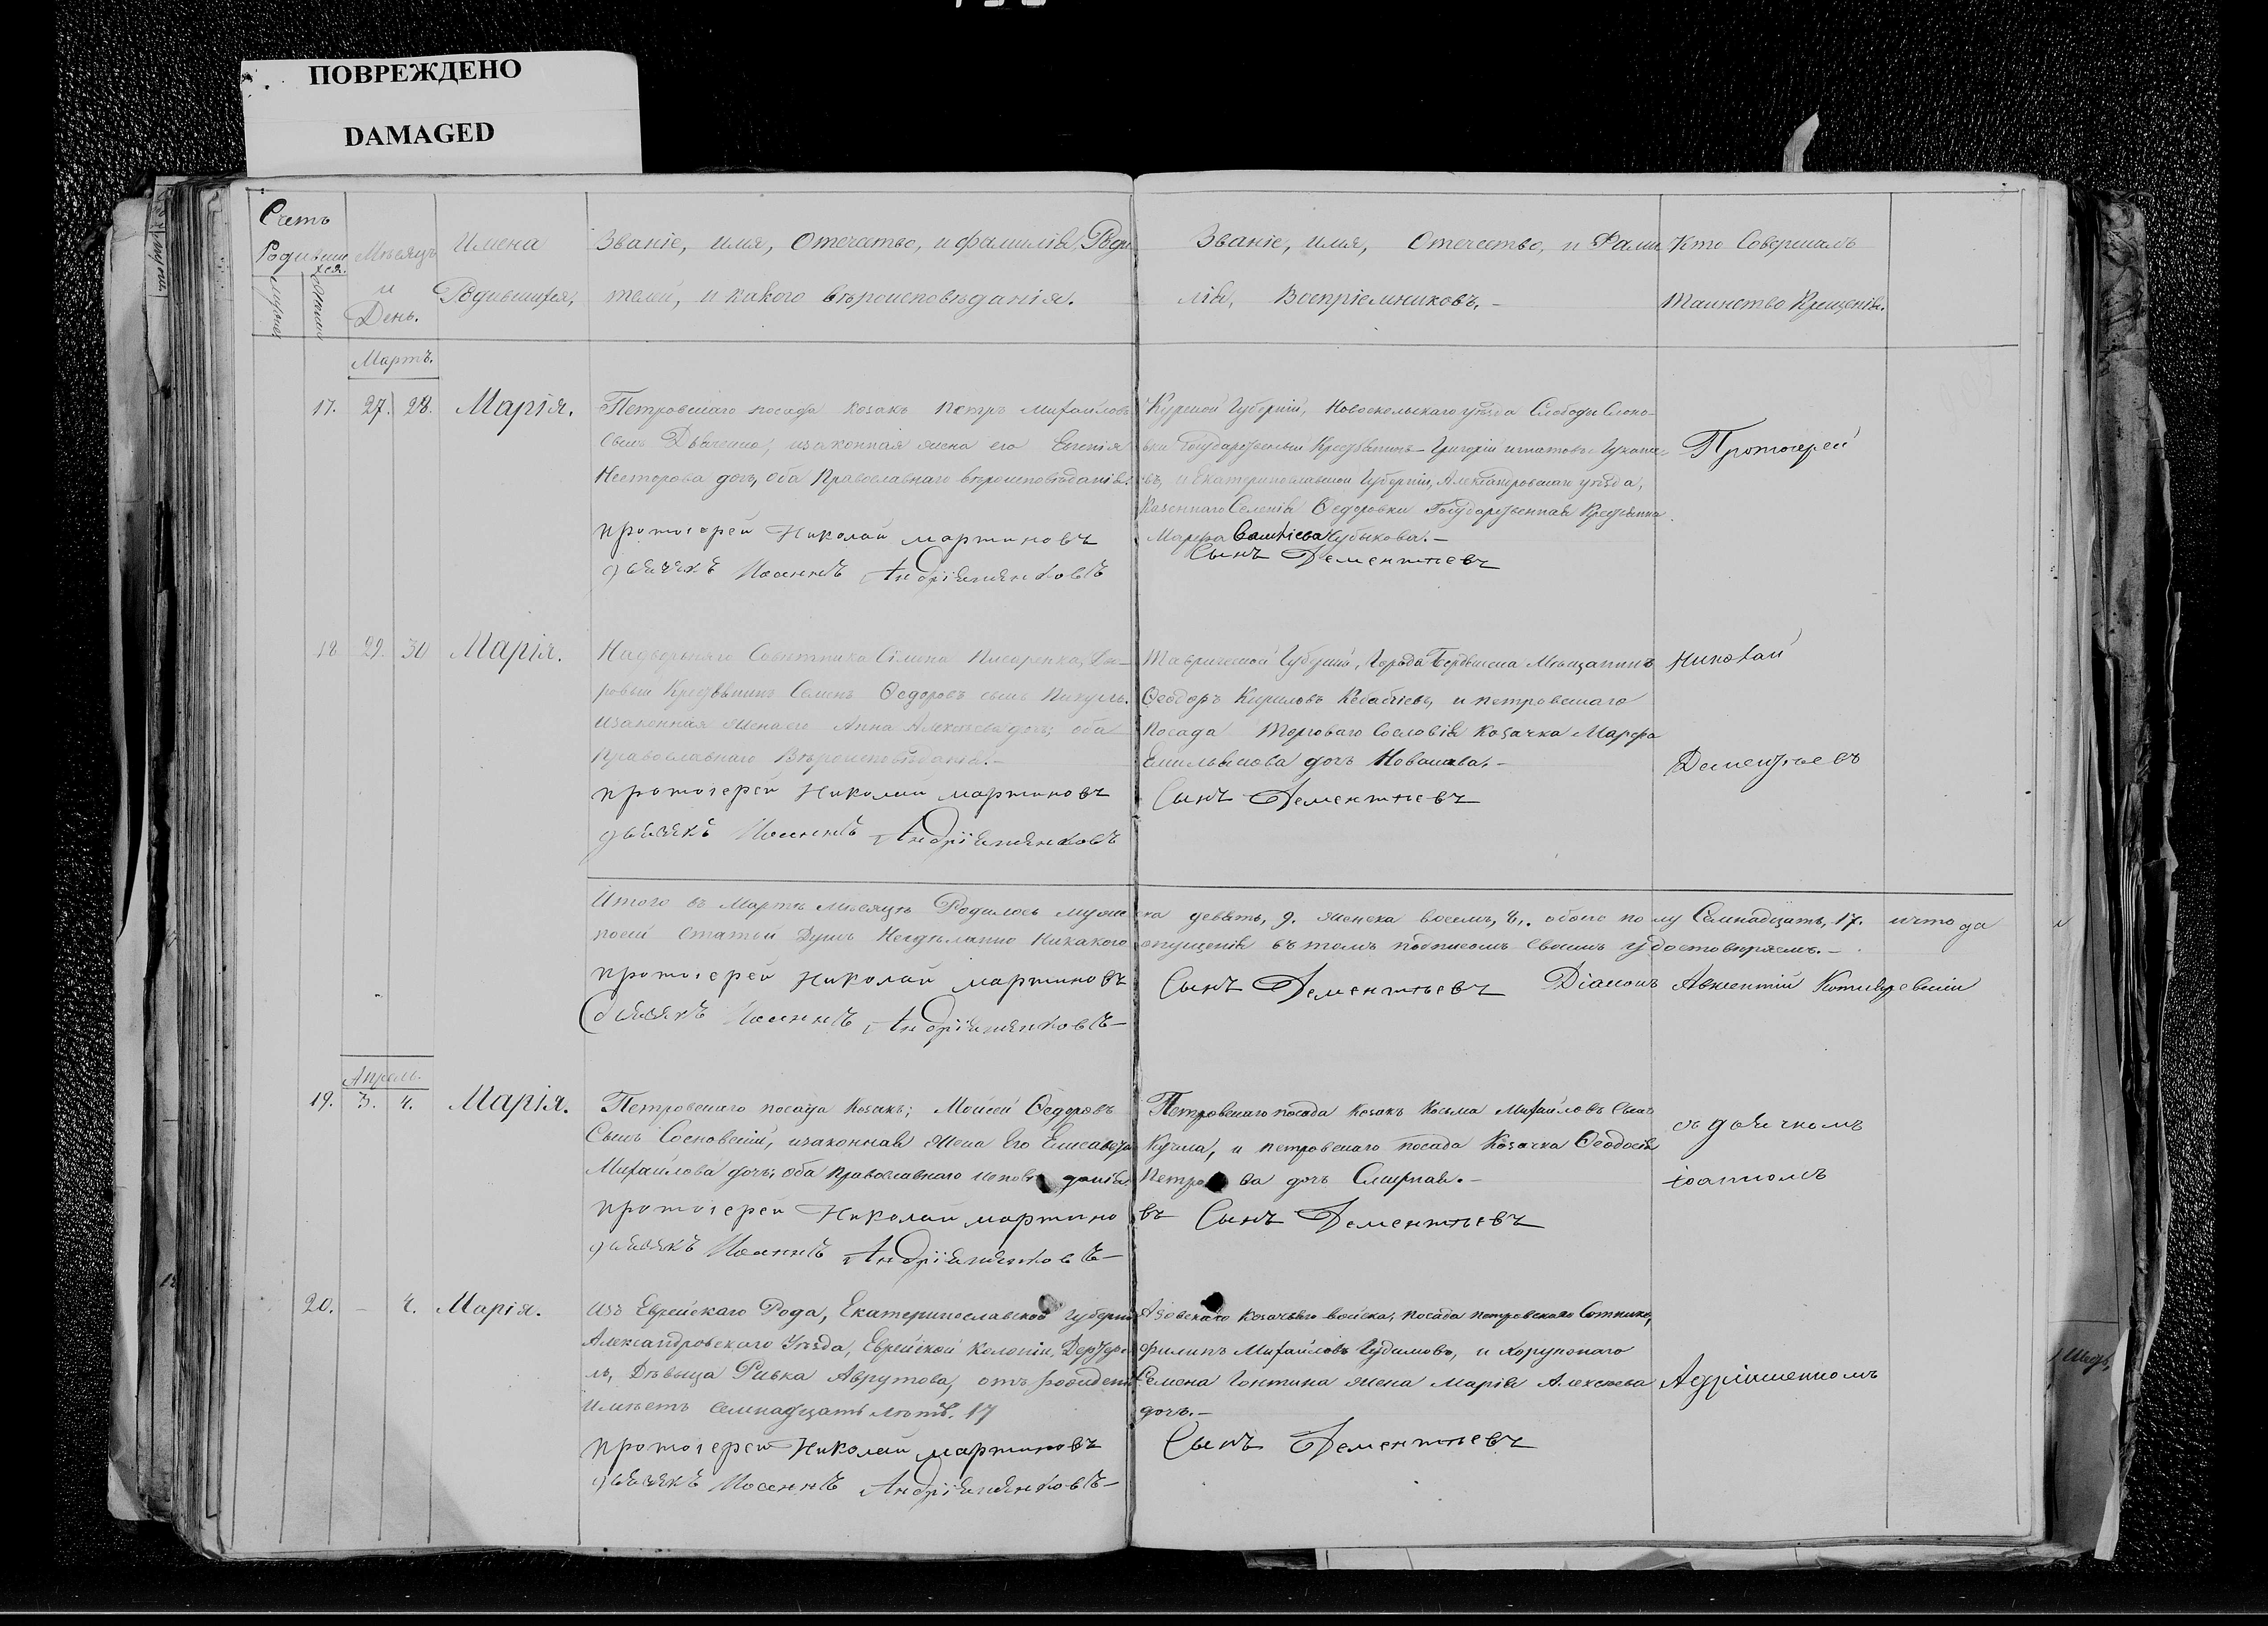 ПОВРЕЖДЕНО
DAMAGED
Счетъ
Родивших
ся.
Мѣсяцъ
и
День.
Имена
Родившихся,
Званіе, имя, Отечество, и фамилія Роди
телей, и какого вѣроисповѣданія.
Званіе, имя, Отечество, и Фами
лія, Воспріемниковъ.-
Кто Совершалъ
таинство Крещенія.
Мартъ.
17. 27. 28. Марія.
Петровскаго посада козакъ Петръ Михайловъ
сынъ законная жена его Евгенія
Несторова дочь, оба Православнаго вѣроисповѣданія.
протоіерей Николай мартиновъ
дьячекъ Иоаннъ Андріяшенковъ
Курской Губерніи, Новоскольскаго уѣзда Слободы Слоно-
вки Государственный Крестьянинъ Григорій
въ, и Екатеринославской Губерніи, Александровскаго уѣзда,
Казеннаго Селенія Ѳедоровки Государственная Крестьянка
Марфа
Сынъ Дементьевъ
Протоіерей
18 29. 30 Марія.
Надворнаго Совѣтника Сімона Писаренка, Да-
ровый Крестьянинъ Семенъ Ѳедоровъ сынъ
изаконная жена его Анна Алексѣева дочь; оба
Православнаго Вѣроисповѣданія.-
протоіерей Николай мартиновъ
дьячекъ Иоаннъ Андріяшенковъ
Таврической Губерніи, Города Бердянска Мѣщанинъ
Ѳеодоръ Кириловъ и петровскаго
посада торговаго Сословія Козачка Марфа
Емильянова дочь
Сынъ Дементьевъ
Николай
Дементьевъ
Итого въ Мартѣ мѣсяцѣ Родилось муже
ска девять, 9. женска восемь, 8,. обоего полу Семнадцать, 17. и что да
поей статьи Душъ Неидѣлано Никакого
опущенія въ томъ подписомъ своимъ удостовѣряемъ.-
протоіерей Николай мартиновъ
Сынъ Дементьевъ Діаконъ Авксентій
дьячекъ Иоаннъ Андріяшенковъ-
Апрель.
19. 3. 4. Марія.
Петровскаго посада Козакъ; Мойсей Ѳедоровъ
Сынъ Сосновскій, изаконная жена Его Елисавета
Михайлова дочь; оба Православнаго данія
протоіерей Николай мартино
дьячекъ Иоаннъ Андріяшенковъ-
Петровскаго посада Козакъ Козьма Михайловъ Сынъ
Кучма, и петровскаго посада Козачка Ѳеодосія
Петро ва дочь
въ Сынъ Дементьевъ
съ дьячкомъ
іоанномъ
20. - 4. Марія.
Изъ Еврейскаго Рода, Екатеринославской губерніи
Александровскаго Уѣзда, Еврейской Колоніи,
Дѣвыца Ривка Аврутова, отъ рожденія
Имѣетъ Семнадцать лѣтъ. 17
протоіерей Николай мартиновъ
дьячекъ Иоаннъ Андріяшенковъ-
Азовскаго козачьяго войска, посада петровскаго Сотника,
Филипъ Михайловъ и Хорунжаго
Семена Гонтина жена Марія Алексѣева
дочь.-
Сынъ Дементьевъ
Адріяшенкомъ